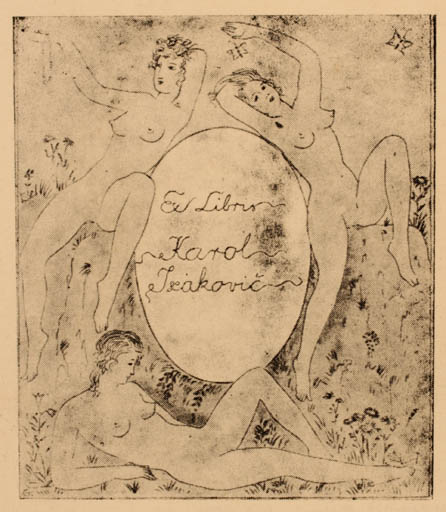 Ex Libris
Karol
Izaković